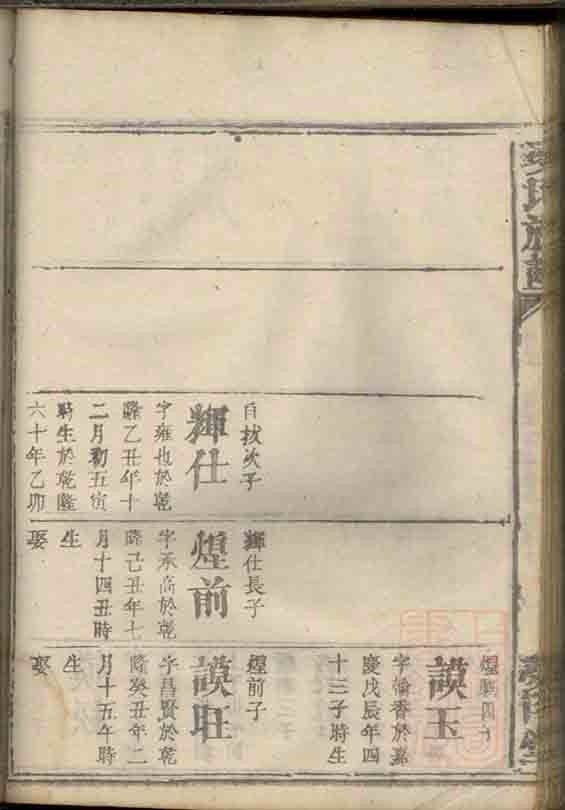 氏族譜
自拔次子
輝仕
字雍也於乾
隆乙丑年十
二月初五寅
時生於乾隆
六十年乙卯
輝仕長子
煌前
字承高於乾
隆己丑年七
月十四丑時
生
娶
四子
謨玉
字 香於嘉
慶戊辰年四
十二子時生
煌前子
謨旺
字昌賢於乾
隆癸丑年二
月十五午時
生
娶